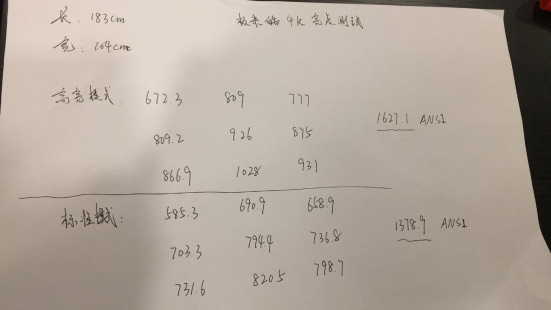 长：183cm
极米 4K 亮度测试
宽：104cm
高亮模式：672.3 809 777
809.2 926 875
1627.1 ANSI
866.9 1028 931
标准模式：585.3 690.9 658.9
703.3 794.4 736.8
1378.9 ANSI
731.6 820.5 798.7